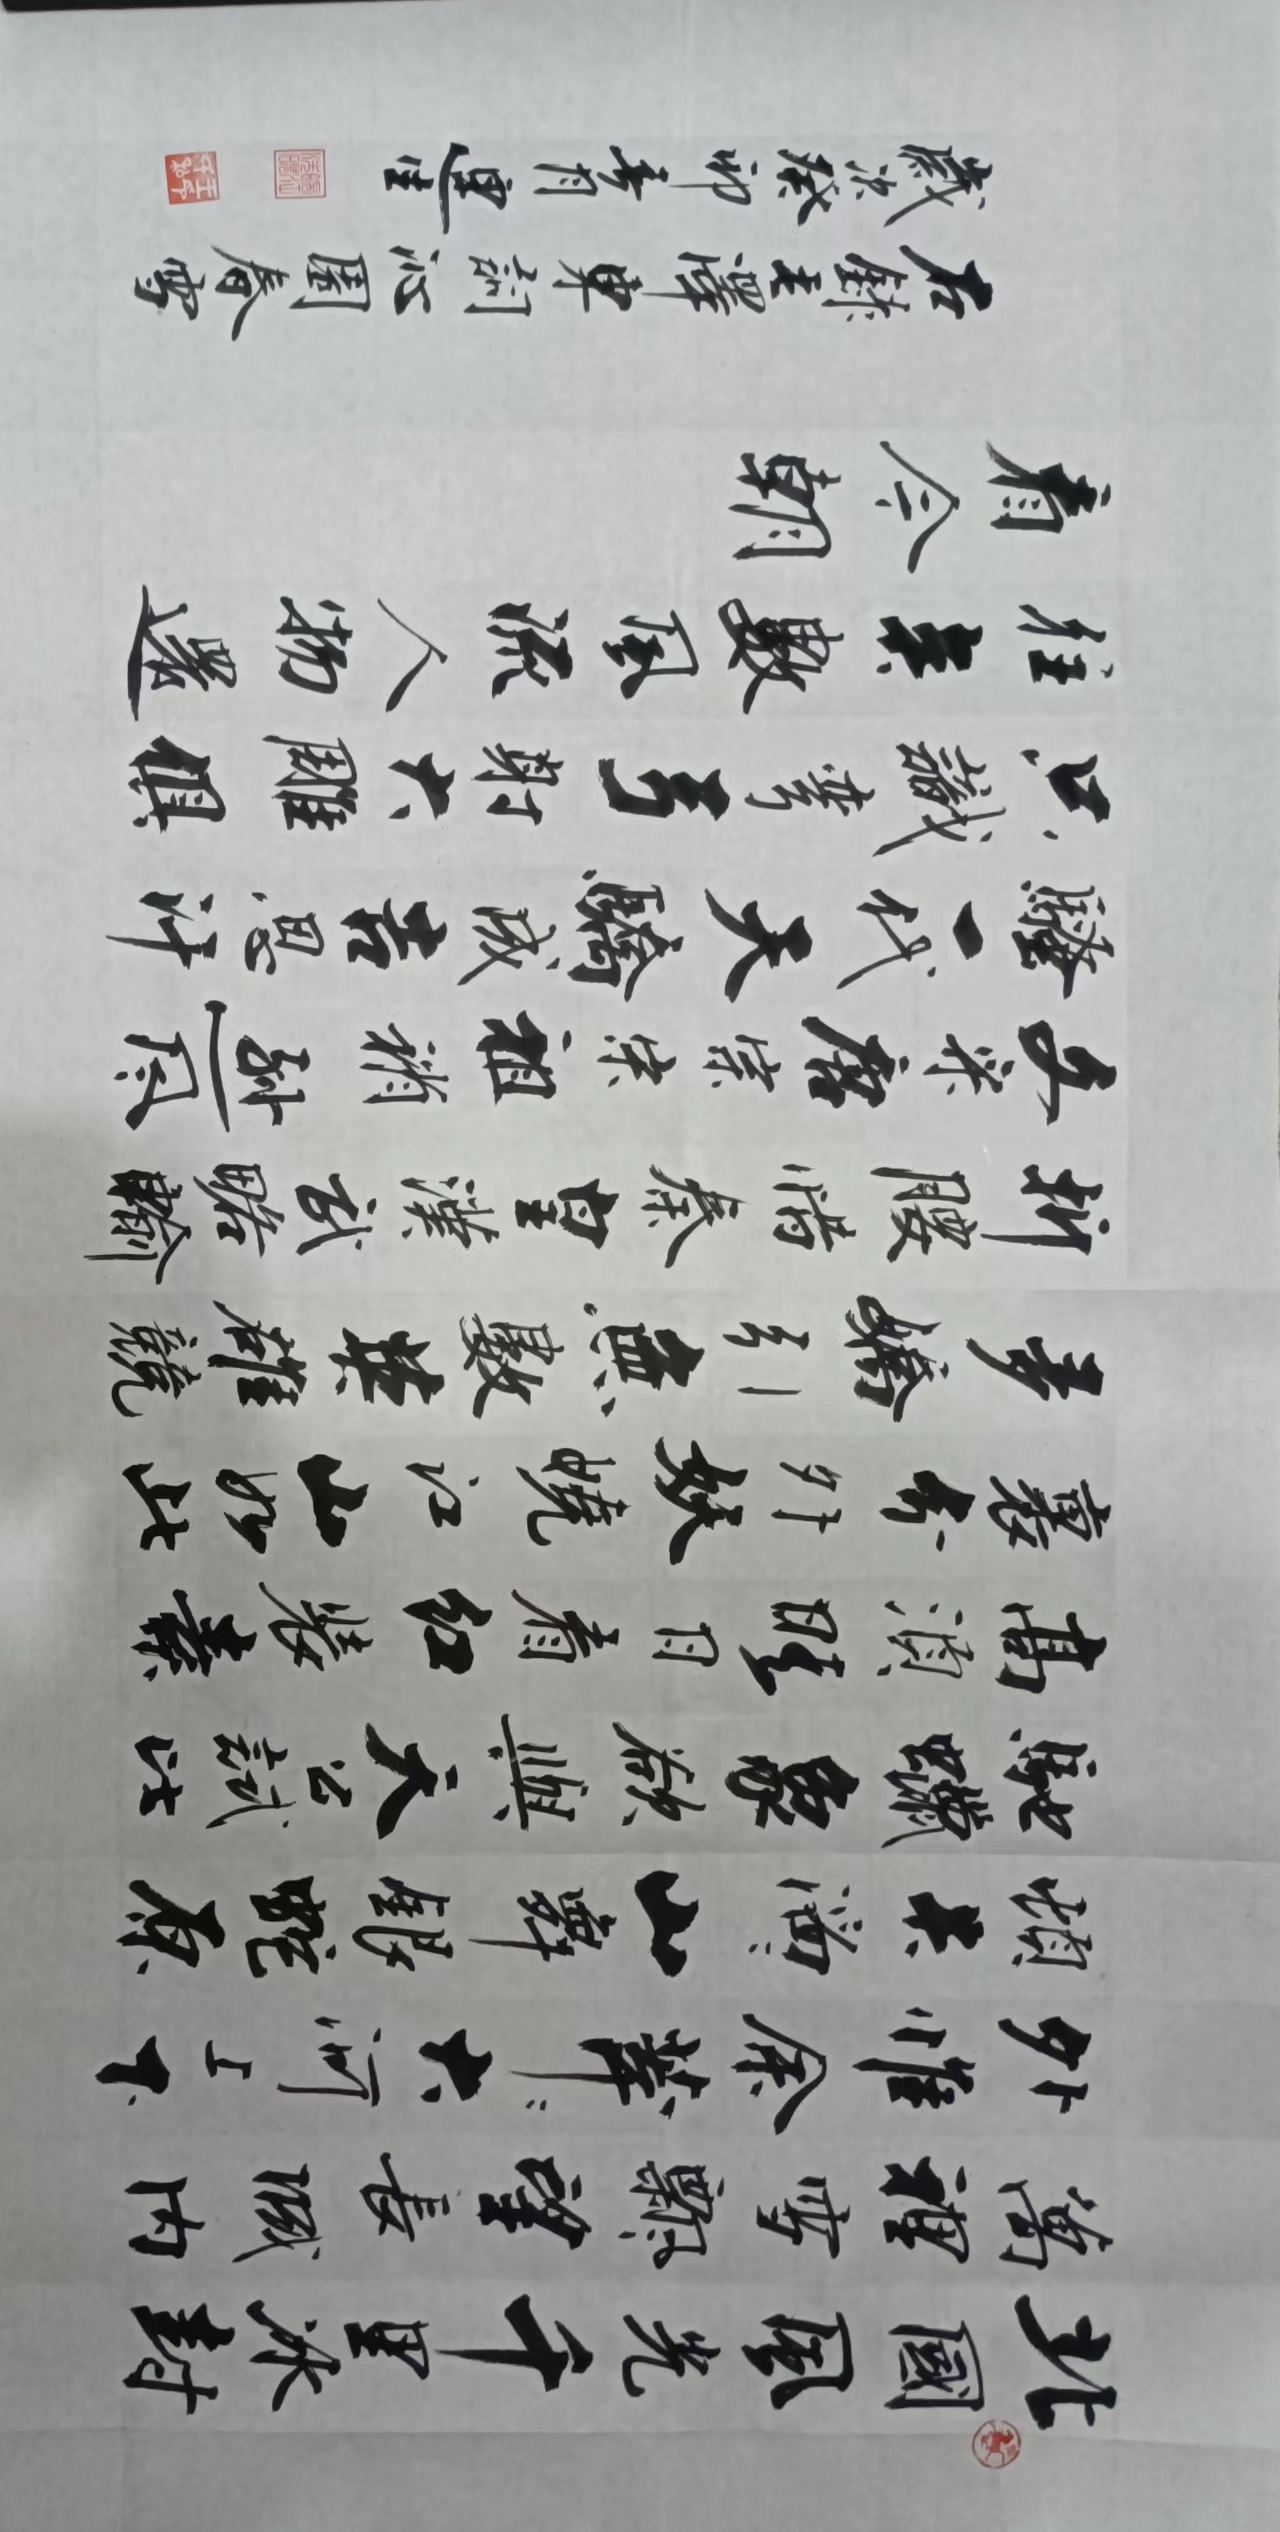 北國風光千里冰封
萬裡雪飄望長城內
外惟余莽々大河上下
頓失滔々山舞銀蛇原
馳蠟象欲與天公試比
高須晴日看紅裝素
裹分外妖嬈江山如此
多嬌引無數英雄競
折腰惜秦皇漢武略輸
文采唐宗宋祖稍遜風
騷一代天驕成吉思汗
只識彎弓射大雕俱
往矣數風流人物還
看今朝
右錄毛澤東詞沁園春雪
歲次癸卯春月